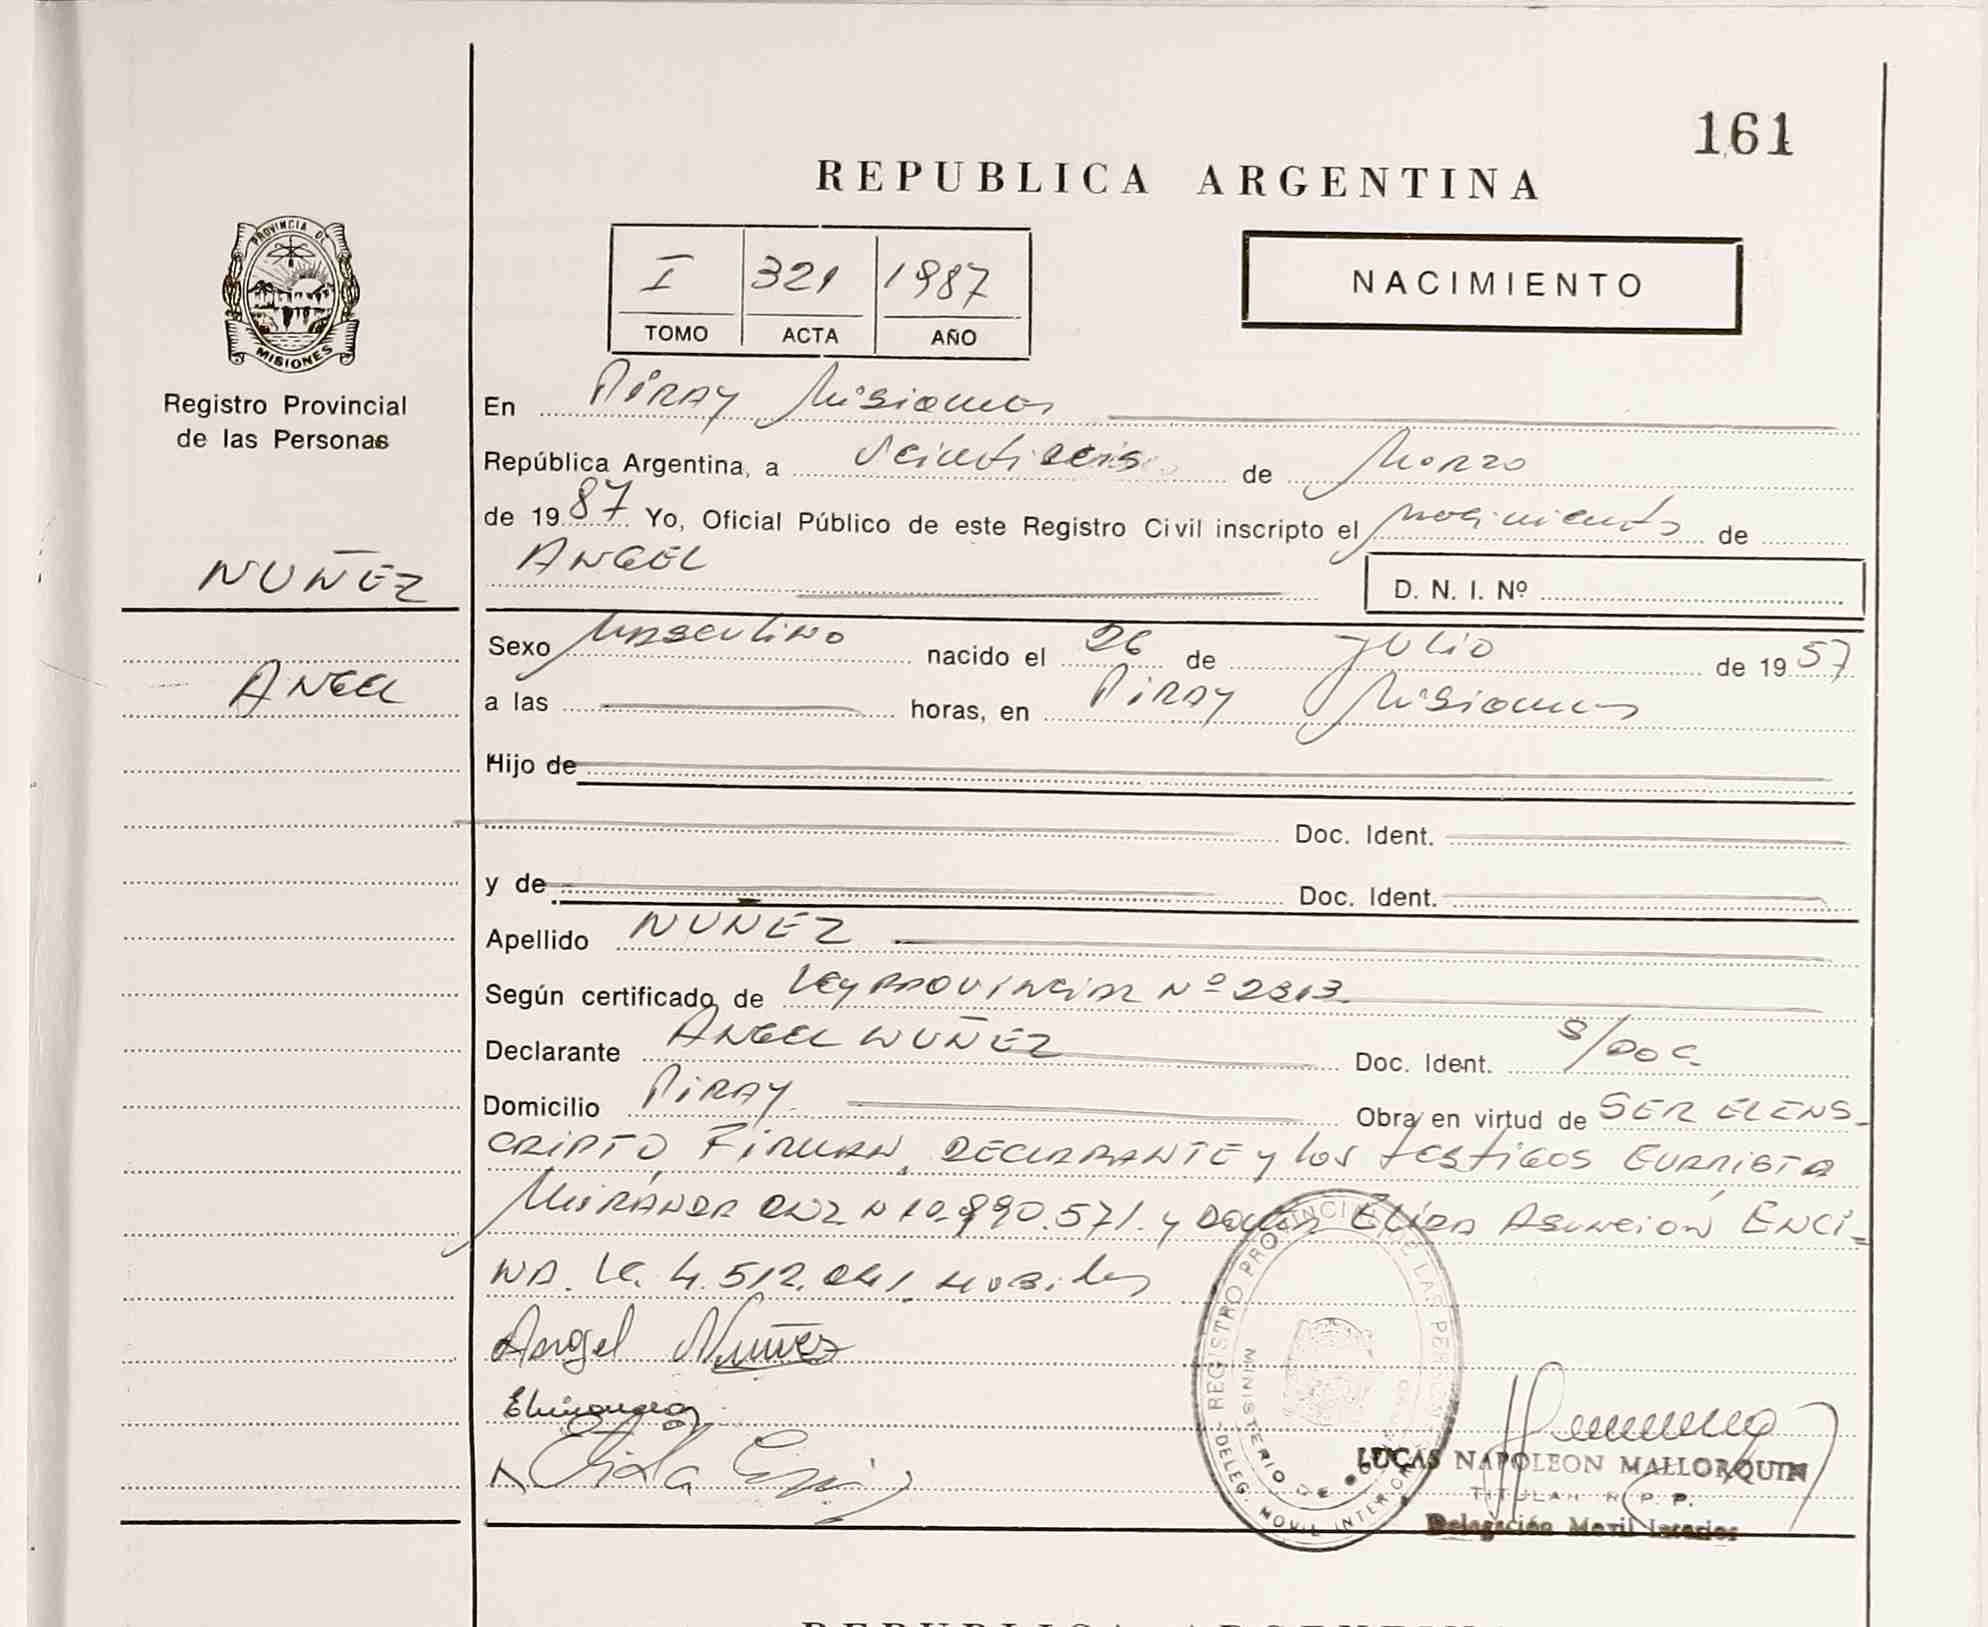 161
REPUBLICA ARGENTINA
PROVINCIA DE
MISIONES
Registro Provincial
de las Personas
I 321 1987
TOMO ACTA AÑO
NACIMIENTO
En Piray Misiones
República Argentina, a veintiseis de Marzo
de 1987 Yo, Oficial Público de este Registro Civil inscripto el nacimiento de
NUÑEZ
ANGEL
ANGEL
D. N. I. Nº
Sexo Masculino nacido el 26 de JULIO de 1957
a las horas, en Piray Misiones
Hijo de
Doc. Ident.
y de Doc. Ident.
Apellido NUÑEZ
Según certificado de Ley PROVINCIAL Nº 2313
Declarante ANGEL NUÑEZ Doc. Ident. S/DOC
Domicilio PiRAY Obra en virtud de SER EL INS-
CRIPTO FIRMAN, DECLARANTE y los testigos
MIRANDA DNI N 10.990.571. y ELIDA ASUNCIÓN ENCI-
NA. LC. 4.512.041.
Angel Nuñez
REGISTRO PROVINCIAL DE LAS PERSONAS
MINISTERIO DE
DELEG. MOVIL INTERIOR
LUCAS NAPOLEON MALLORQUIN
TITULAR R. P. P.
Delegación Movil
REPUBLICA ARGENTINA